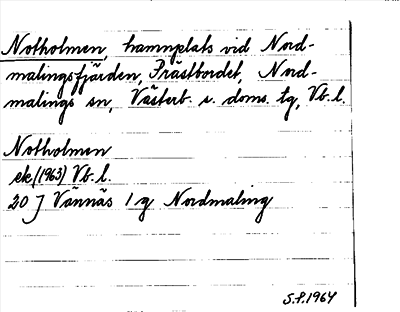 Notholmen, hamnplats vid Nord-
malingsfjärden, Prästbordet, Nord-
malings sn, Västerb. s. doms. tg, Vb. l.
Notholmen
ek. (1963) Vb. l.
20 J Vännäs 1 g Nordmaling
S.P. 1964